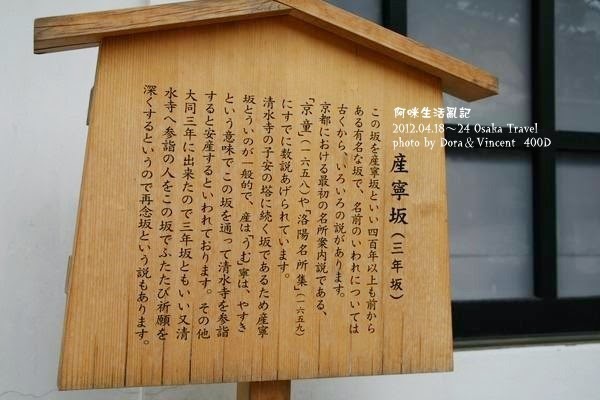 産寧坂（三年坂）
この坂を産寧坂といい四百年以上も前から
ある有名な坂で、名前のいわれについては
古くから、いろいろの説があります。
京都における最初の名所案内説である、
「京童」（一六五八）や「洛陽名所集」（一六五九）
にすでに数説あげられています。
清水寺の子安の塔に続く坂であるため産寧
坂とういのが一般的で、産は「うむ」寧は、やすき
という意味でこの坂を通って清水寺を参詣
すると安産するといわれております。その他
大同三年に出来たので三年坂ともいい又清
水寺へ参詣の人をこの坂でふたたび祈願を
深くするというので再念坂という説もあります。
阿咪生活亂記
2012.04.18～24 Osaka Travel
photo by Dora & Vincent 400D